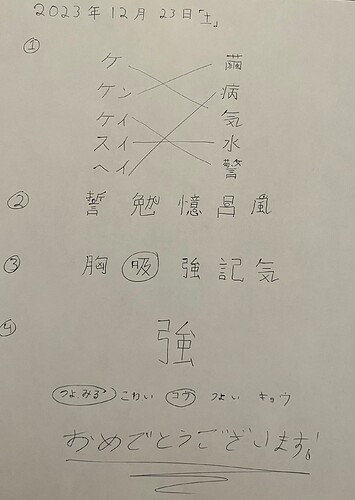 2023年12月23日「土」
①
ケ 繭
ケン 病
ケイ 気
スイ 水
ヘイ 警
② 誓 勉 憶 呂 嵐
③ 胸 吸 強 記 気
④
強
つよ.みる こわい コウ つよい キョウ
おめでとうございます!